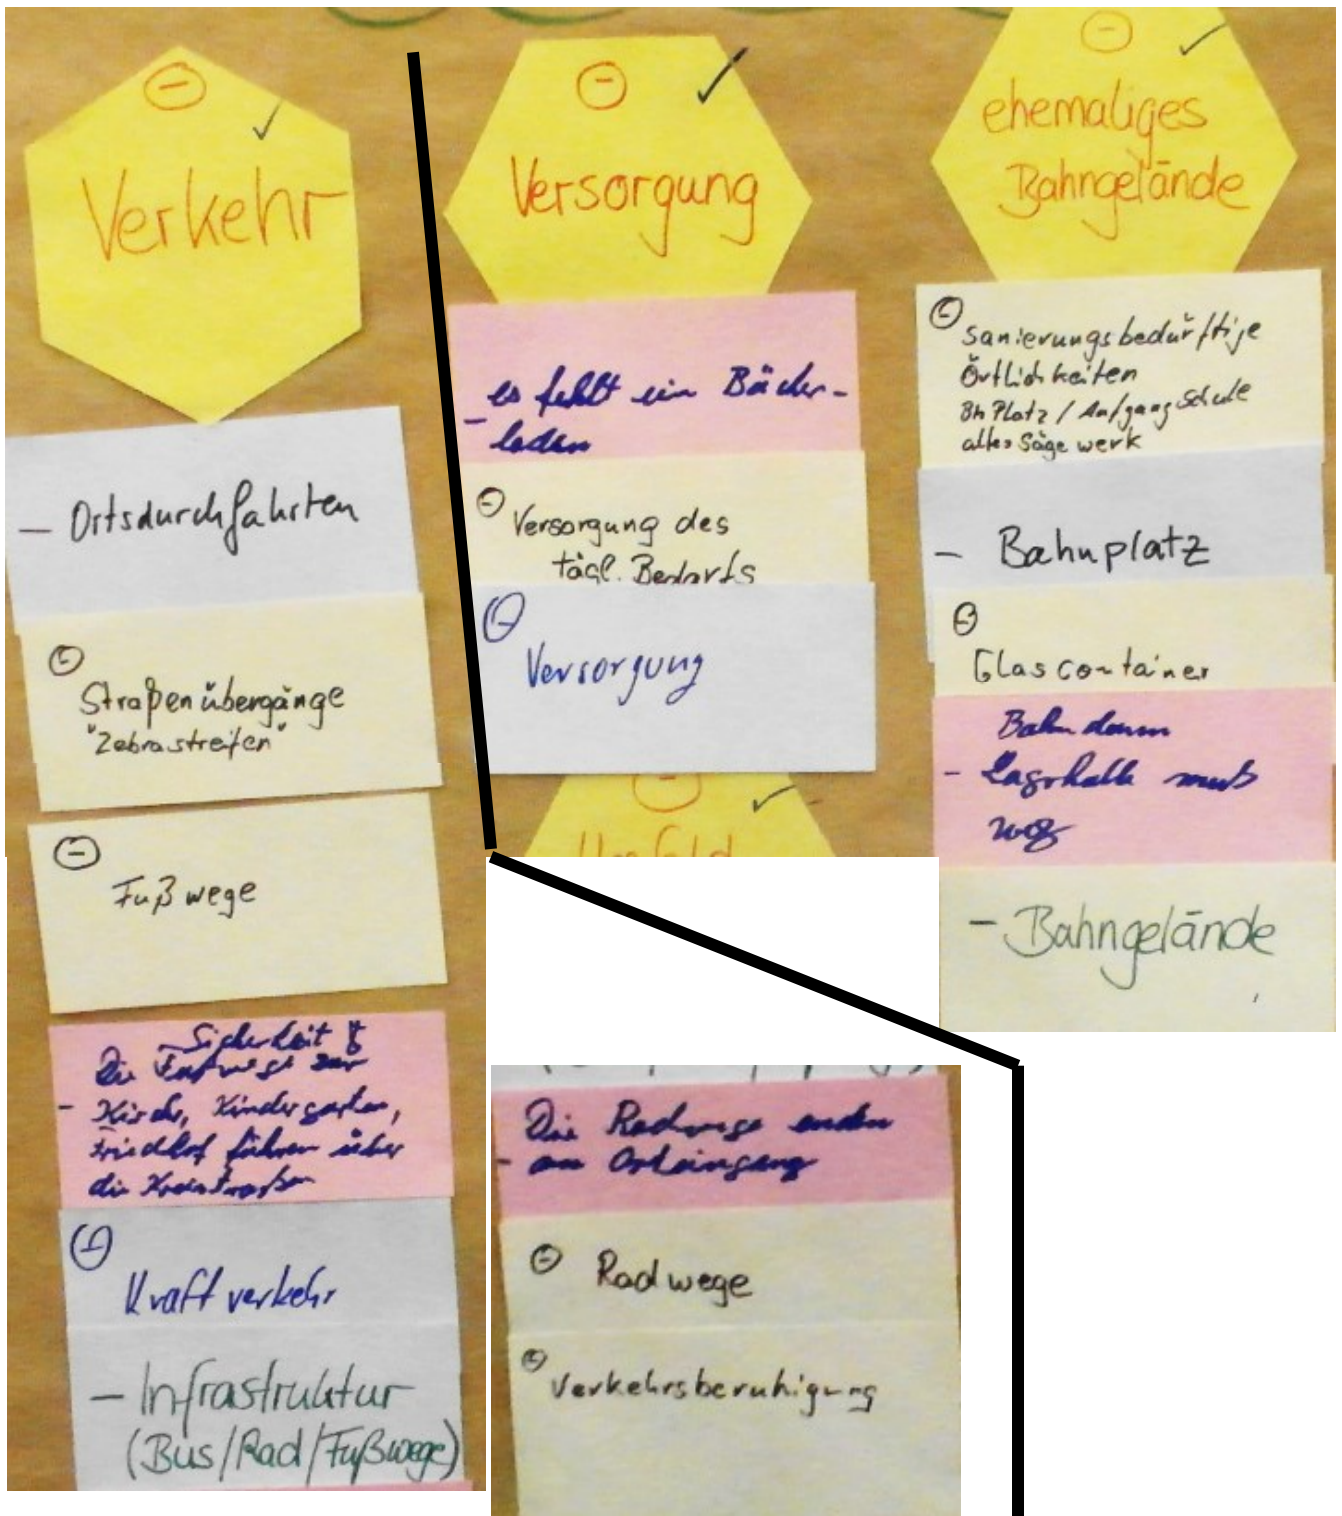 Verkehr
- Ortsdurchfahrten
Straßenübergänge
"Zebrastreifen"
Fußwege
Sicherheit
Die Fußwege zur
- Kirche, Kindergarten,
Friedhof führen über
die Kreisstraßen
Kraftverkehr
- Infrastruktur
(Bus/Rad/Fußwege)
Die Radwege enden
- am Ortseingang
Radwege
Verkehrsberuhigung
Versorgung
es fehlt ein Bäcker-
- laden
Versorgung des
tägl. Bedarfs
Versorgung
Umfeld
ehemaliges
Bahngelände
Sanierungsbedürftige
Örtlichkeiten
Bh Platz / Aufgang Schule
altes Sägewerk
- Bahnplatz
Glascontainer
Bahndamm
- Lagerhalle muß
weg
- Bahngelände